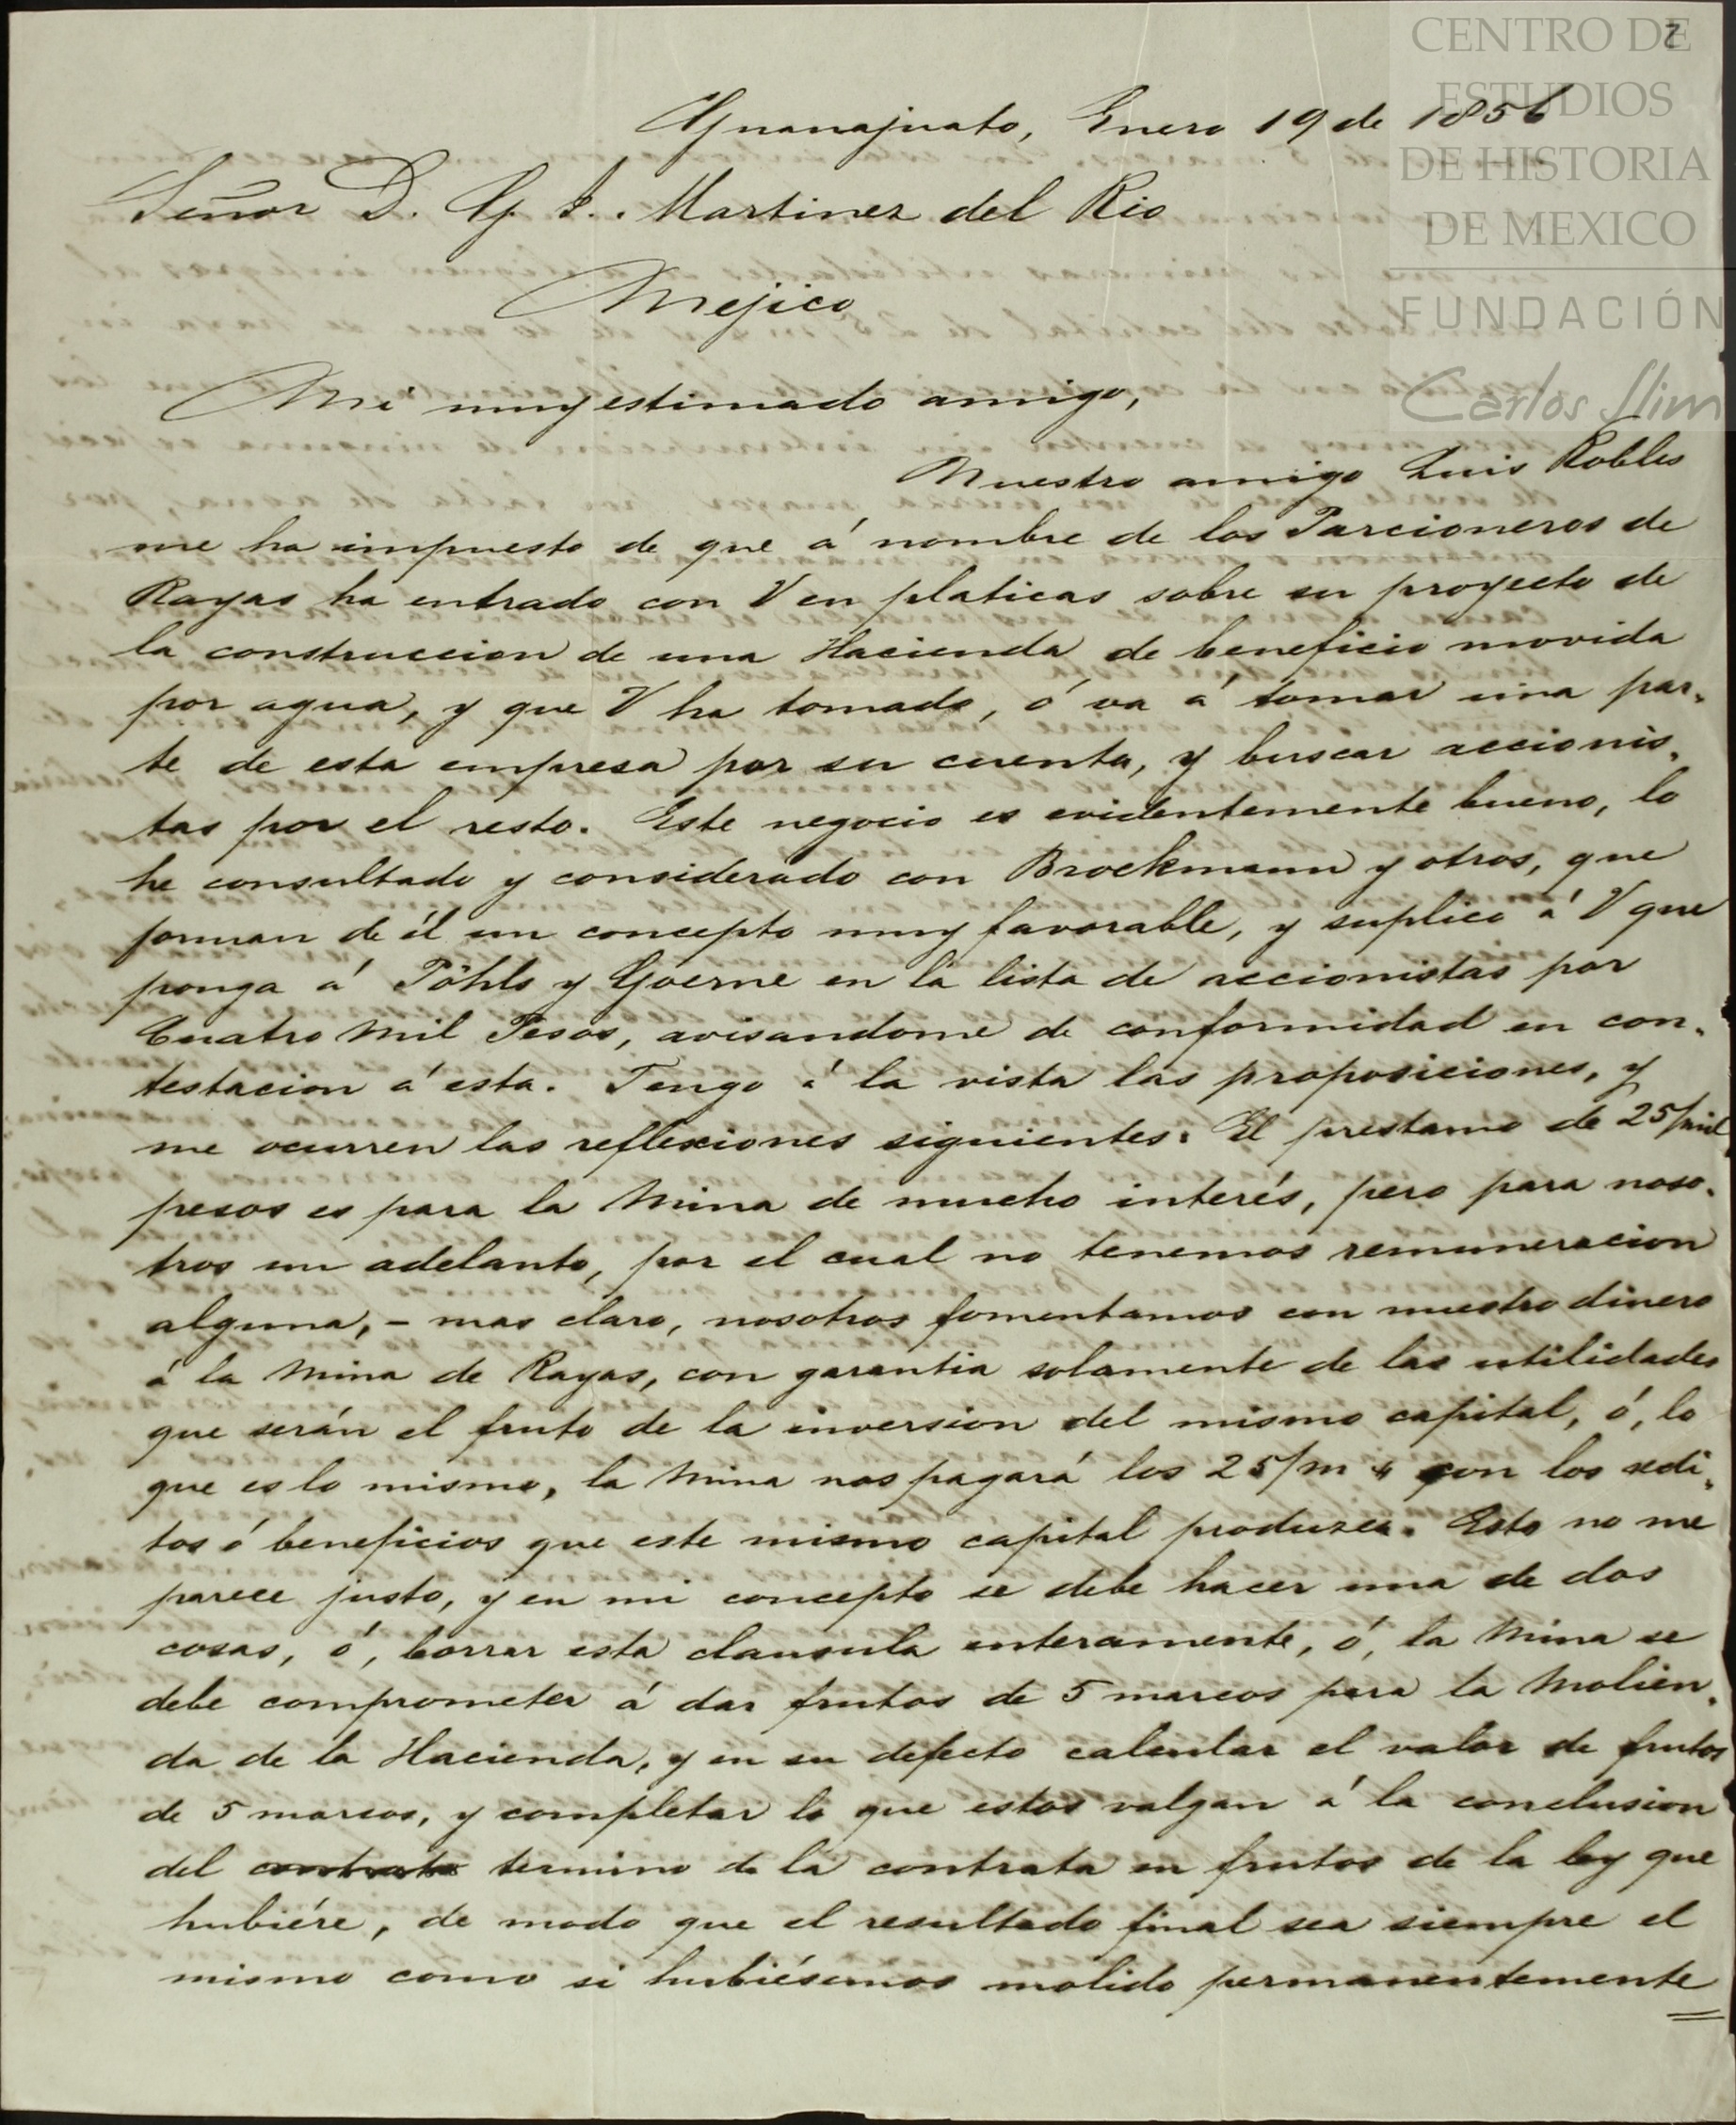 2
CENTRO DE
ESTUDIOS
DE HISTORIA
DE MEXICO
FUNDACIÓN
Carlos Slim
Guanajuato, Enero 19 de 1856
Señor D. G. J. Martinez del Rio
Mejico
Mi muy estimado amigo,
Nuestro amigo Luis Robles
me ha impuesto de que á nombre de los Parcioneros de
Rayas ha entrado con V en platicas sobre su proyecto de
la construccion de una Hacienda de beneficio movida
por agua, y que V ha tomado, ó va á tomar una par-
te de esta empresa por su cuenta, y buscar accionis-
tas por el resto. Este negocio es evidentemente bueno, lo
he consultado y considerado con Brockmann y otros, que
forman de él un concepto muy favorable, y suplico á V que
ponga á Pöhls y Goerne en la lista de accionistas por
Cuatro Mil Pesos, avisandome de conformidad en con-
testacion á esta. Tengo á la vista las proposiciones, y
me ocurren las reflexiones siguientes. El prestamo de 25/mil
pesos es para la Mina de mucho interés, pero para noso-
tros un adelanto, por el cual no tenemos remuneracion
alguna, - mas claro, nosotros fomentamos con nuestro dinero
á la Mina de Rayas, con garantia solamente de las utilidades
que serán el fruto de la inversion del mismo capital, ó, lo
que es lo mismo, la Mina nos pagará los 25/m $ con los redi-
tos ó beneficios que este mismo capital produzca. Esto no me
parece justo, y en mi concepto se debe hacer una de dos
cosas, ó, borrar esta clausula enteramente, ó, la Mina se
debe comprometer á dar frutos de 5 marcos para la Molien-
da de la Hacienda, y en su defecto calcular el valor de frutos
de 5 marcos, y completar lo que estos valgan á la conclusion
del contrato termino de la contrata en frutos de la ley que
hubiére, de modo que el resultado final sea siempre el
mismo como si hubiésemos molido permanentemente